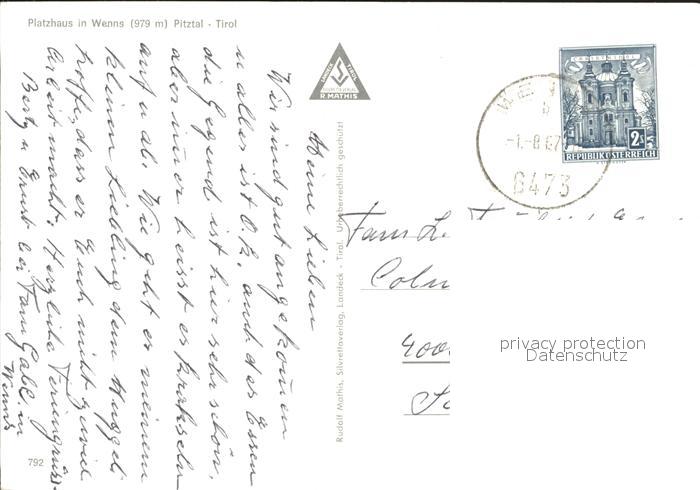 Platzhaus in Wenns (979 m) Pitztal - Tirol
Meine Lieben
Wir sind gut angekommen
u alles ist O.K. auch das Essen
die Gegend ist hier sehr schön,
aber immer heisst es kraxeln
auf u ab. Wie geht es meinem
kleinen Liebling dem Huggeli
hoffe, dass er Euch nicht zuviel
Arbeit macht. Herzliche Feriengrüsse
Berty u Ernst bei Fam Gabl in
Wenns
LANDECK TIROL
R. MATHIS
Rudolf Mathis, Silvrettaverlag, Landeck - Tirol. Urheberrechtlich geschützt
CHRISTKINDL
2.40
REPUBLIK ÖSTERREICH
-1.-8.67
6473
Fam
privacy protection
Datenschutz
792